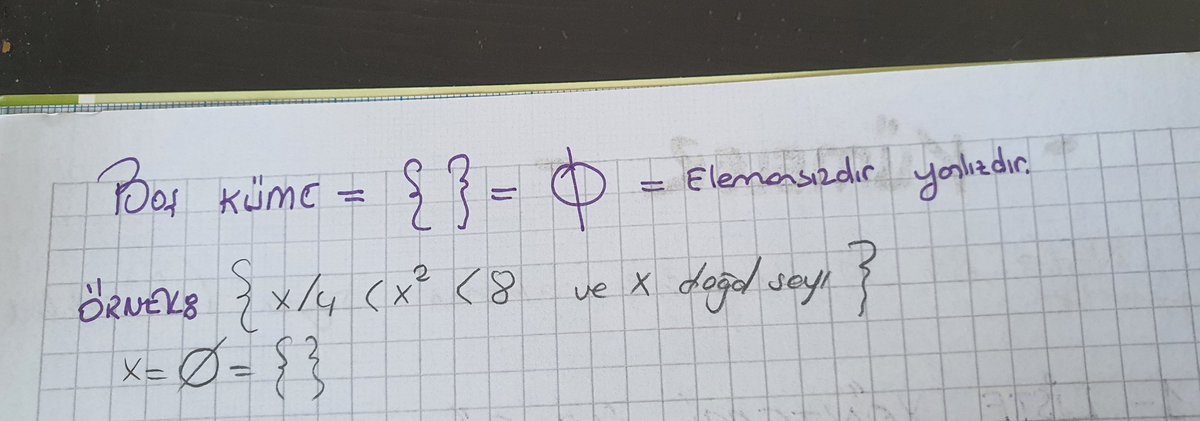 Boş küme = { } = ϕ = Elemansızdır yalnızdır.
ÖRNEK: { x/4 < x² < 8 ve x doğal sayı }
x = ∅ = { }